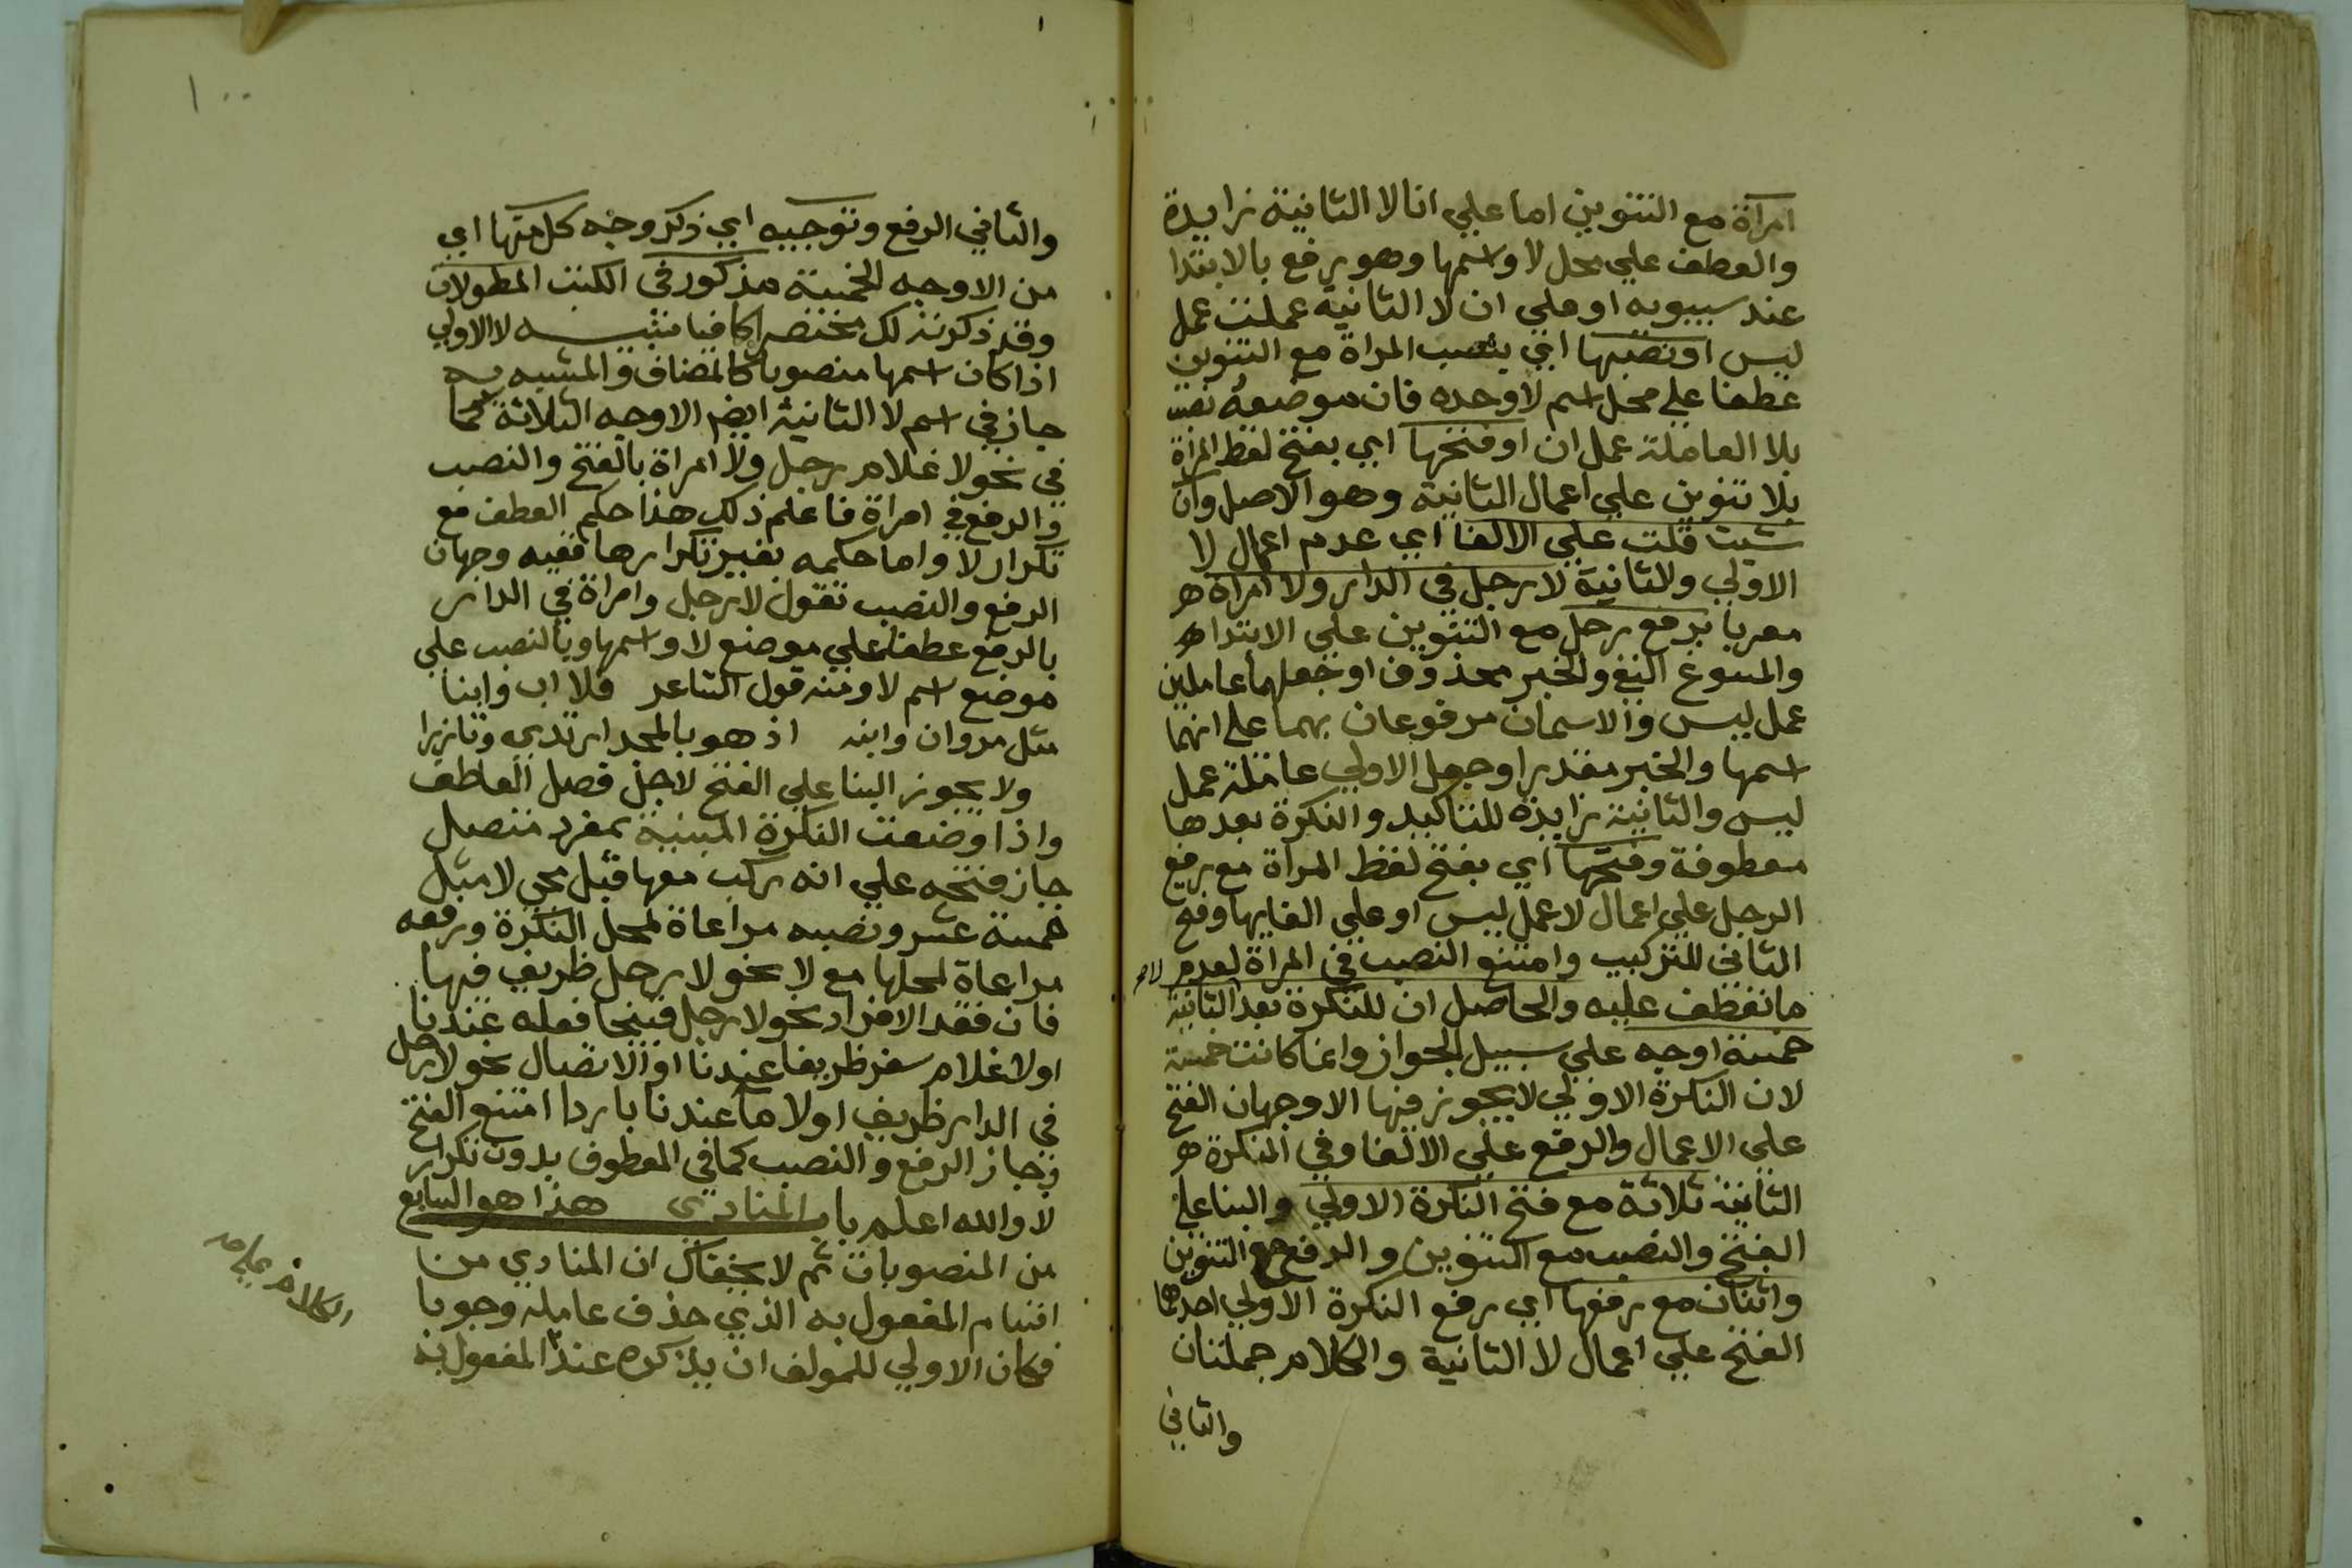 امرأة مع التنوين اما علي ان لا الثانية زايدة
والعطف علي محل لا واسمها وهو رفع بالابتدا
عند سيبويه او علي ان لا الثانية عملت عمل
ليس او نصبها اي بنصب المراة مع التنوين
عطفا علي محل اسم لا وحده فان موضعه نصب
بلا العاملة عمل ان او فتحها اي بفتح لفظ المراة
بلا تنوين علي اعمال الثانية وهو الاصل وان
شيت قلت علي الالغا اي عدم اعمال لا
الاولي والثانية لا رجل في الدار ولا امراة
معربا برفع رجل مع التنوين علي الابتدا
والمسوغ النفي والخبر محذوف او جعلهما عاملين
عمل ليس والاسمان مرفوعان بهما علي انهما
اسمها والخبر مقدر او جعل الاولي عاملة عمل
ليس والثانية زايدة للتاكيد والنكرة بعدها
معطوفة وفتحها اي بفتح لفظ المراة مع رفع
الرجل علي اعمال لا عمل ليس او علي الغايها وفتح
الثاني للتركيب وامتنع النصب في المراة لعدم
ما تعطف عليه والحاصل ان للنكرة بعد الثانية
خمسة اوجه علي سبيل الجواز وانما كانت خمسة
لان النكرة الاولي لا يجوز فيها الا وجهان الفتح
علي الاعمال والرفع علي الالغا وفي النكرة
الثانية ثلاثة مع فتح النكرة الاولي والبنا علي
الفتح والنصب مع التنوين والرفع مع التنوين
واثنان مع رفعها اي رفع النكرة الاولي احدهما
الفتح علي اعمال لا الثانية والكلام جملتان
والثاني
والثاني الرفع وتوجيه اي ذكر وجه كل منها اي
من الاوجه الخمسة مذكور في الكتب المطولات
وقد ذكرت لك مختصرا كافيا تنبيه لا الاولي
اذا كان اسمها منصوبا كالمضاف والمشبه به
جاز في اسم لا الثانية ايضا الاوجه الثلاثة كما
في نحو لا غلام رجل ولا امراة بالفتح والنصب
والرفع في امراة فاعلم ذلك هذا حكم العطف مع
تكرار لا واما حكمه بغير تكرارها ففيه وجهان
الرفع والنصب تقول لا رجل وامراة في الدار
بالرفع عطفا علي موضع لا واسمها وبالنصب علي
موضع اسم لا ومنه قول الشاعر فلا اب وابنا
مثل مروان وابنه اذ هو بالمجد ارتدي وتازرا
ولا يجوز البنا علي الفتح لاجل فصل العاطف
واذا وضعت النكرة المبنية بمفرد متصل
جاز فتحه علي انه ركب معها قبل مجي لا مثل
خمسة عشر ونصبه مراعاة لمحل النكرة ورفعه
مراعاة لمحلها مع لا نحو لا رجل ظريف فيها
فان فقد الافراد نحو لا رجل قبيحا فعله عندنا
او لا غلام سفر ظريفا عندنا او الاتصال نحو لا رجل
في الدار ظريف او لا ما عندنا باردا امتنع الفتح
وجاز الرفع والنصب كما في المعطوف بدون تكرار
لا والله اعلم باب المنادي هذا هو السابع
من المنصوبات ثم لا يخفاك ان المنادي من
اقسام المفعول به الذي حذف عامله وجوبا
فكان الاولي للمولف ان يذكره عند المفعول به
الكلام علي